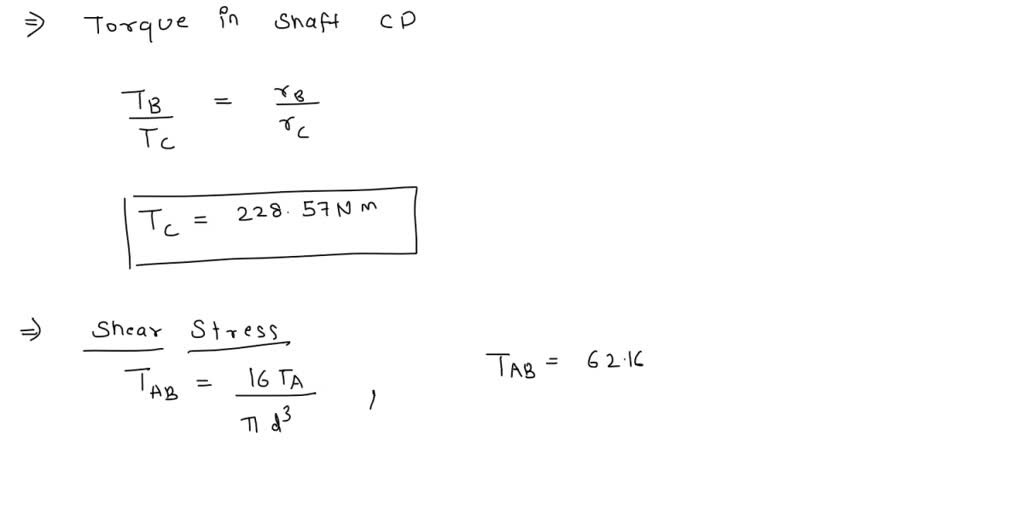 ⇒ Torque in shaft CD
T_B / T_C = r_B / r_C
T_C = 228.57 N m
⇒ Shear Stress
T_AB = 16 T_A / π d³ , T_AB = 62.16